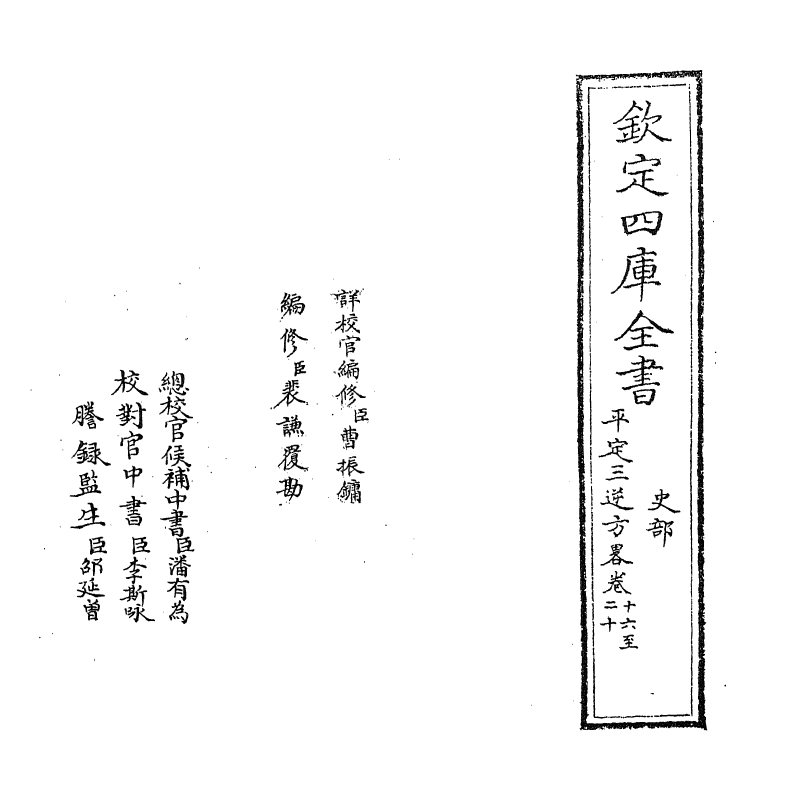 欽定四庫全書
史部
平定三逆方畧卷十六至二十
詳校官編修臣曹振鏞
編修臣裴謙覆勘
總校官候補中書臣潘有為
校對官中書臣李斯咏
謄録監生臣邵延曽